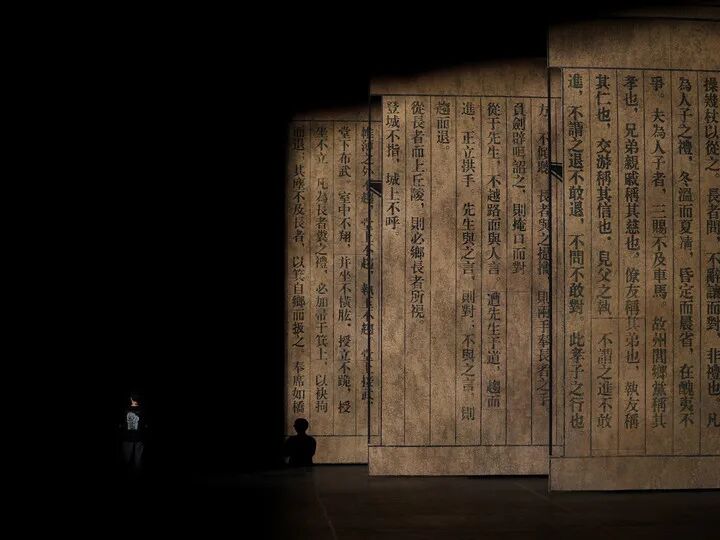 操幾杖以從之。長者問,不辭讓而對,非禮也。凡
為人子之禮,冬溫而夏凊,昏定而晨省,在醜夷不
爭。夫為人子者,三賜不及車馬 故州閭鄉黨稱其
孝也,兄弟親戚稱其慈也,僚友稱其弟也,執友稱
其仁也,交游稱其信也。見父之執 不謂之進不敢
進,不謂之退不敢退,不問不敢對 此孝子之行也
方,不傾聽 長者與之提攜 則兩手奉長者之手
負劍辟咡詔之,則掩口而對
從于先生,不越路而與人言 遭先生于道,趨而
進,正立拱手 先生與之言,則對;不與之言 則
趨而退
從長者而上丘陵,則必鄉長者所視。
登城不指,城上不呼。
帷薄之外不趨,堂上不趨,執玉不趨 堂上接武,
堂下布武 室中不翔,并坐不橫肱,授立不跪,授
坐不立 凡為長者糞之禮,必加帚于箕上,以袂拘
而退;其塵不及長者,以箕自鄉而扱之。奉席如橋